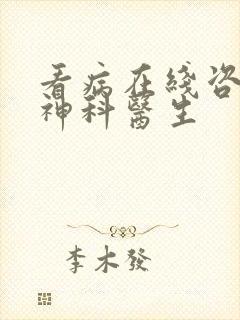 看病在綫咨
神科醫生
李木發